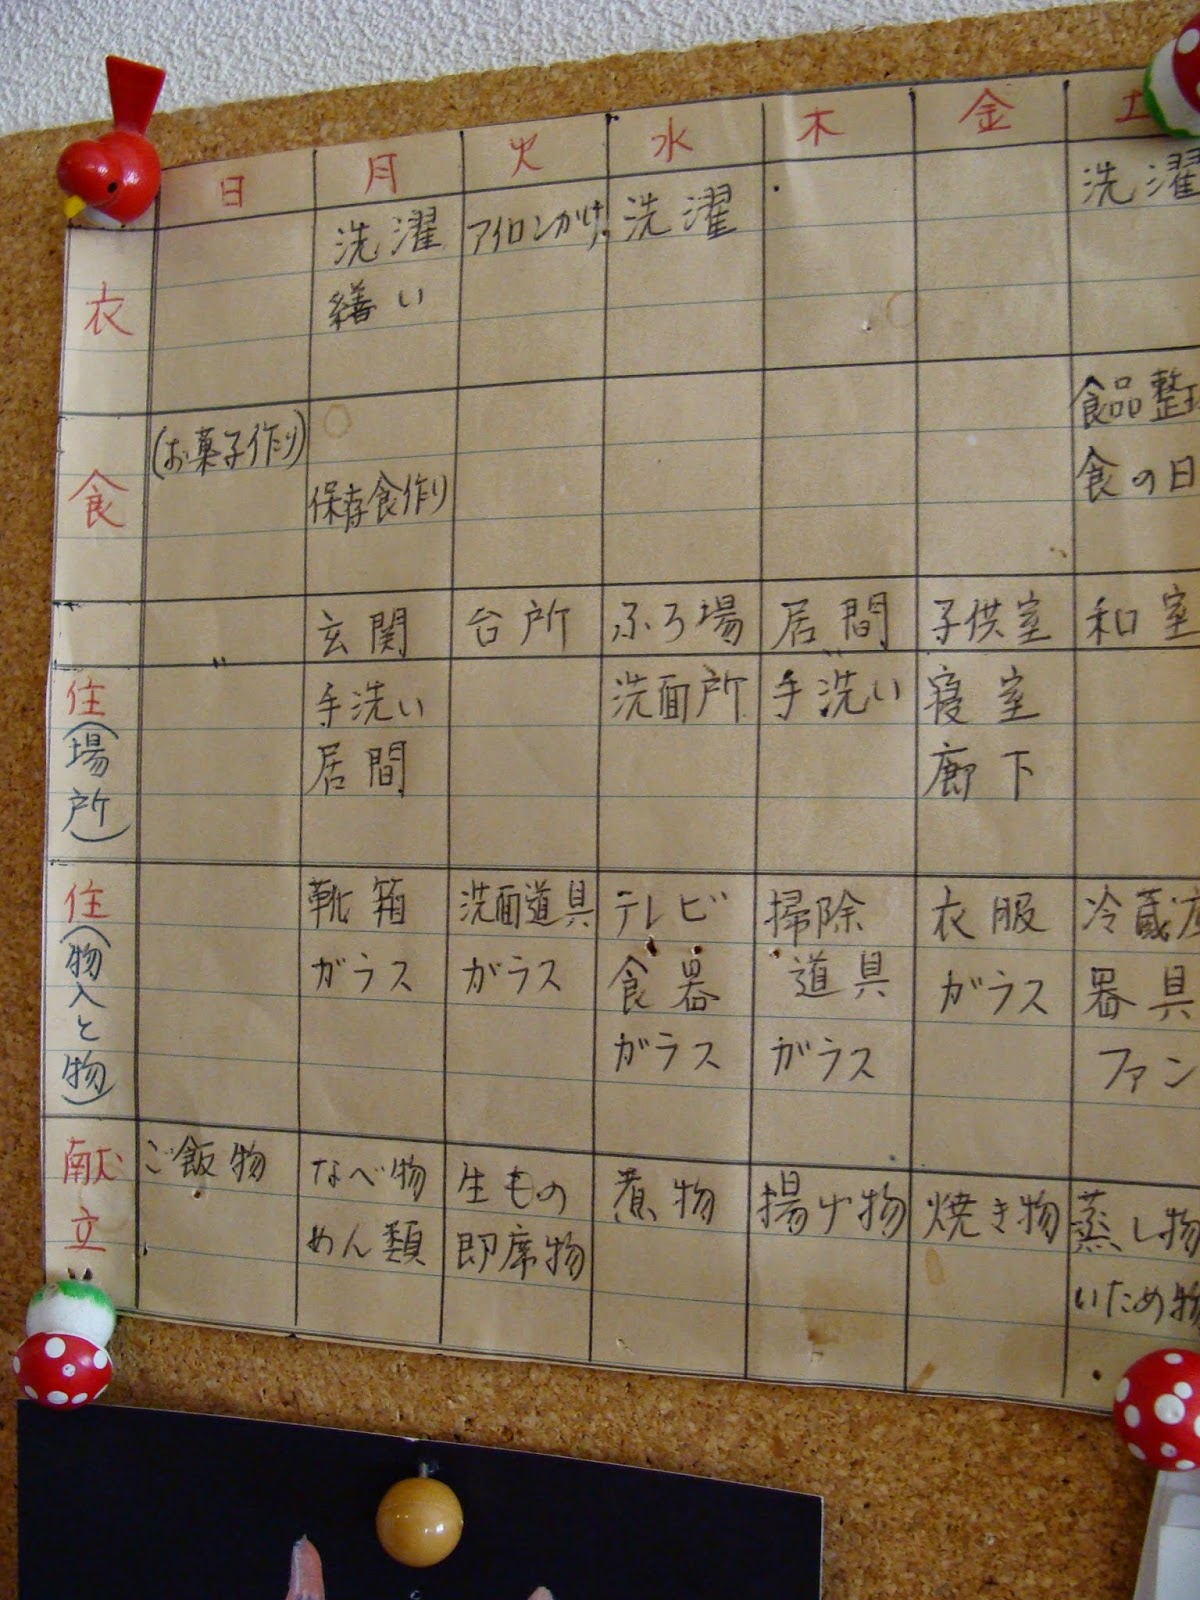 日 月 火 水 木 金 土
衣 洗濯 アイロンかけ 洗濯 洗濯
繕い
食 (お菓子作り) 保存食作り 食品整
食の日
玄関 台所 ふろ場 居間 子供室 和室
住(場所) 手洗い 洗面所 手洗い 寝室
居間 廊下
住(物入と物) 靴箱 洗面道具 テレビ 掃除 衣服 冷蔵
ガラス ガラス 食器 道具 ガラス 器具
ガラス ガラス ファン
献立 ご飯物 なべ物 生もの 煮物 揚げ物 焼き物 蒸し物
めん類 即席物 いため物